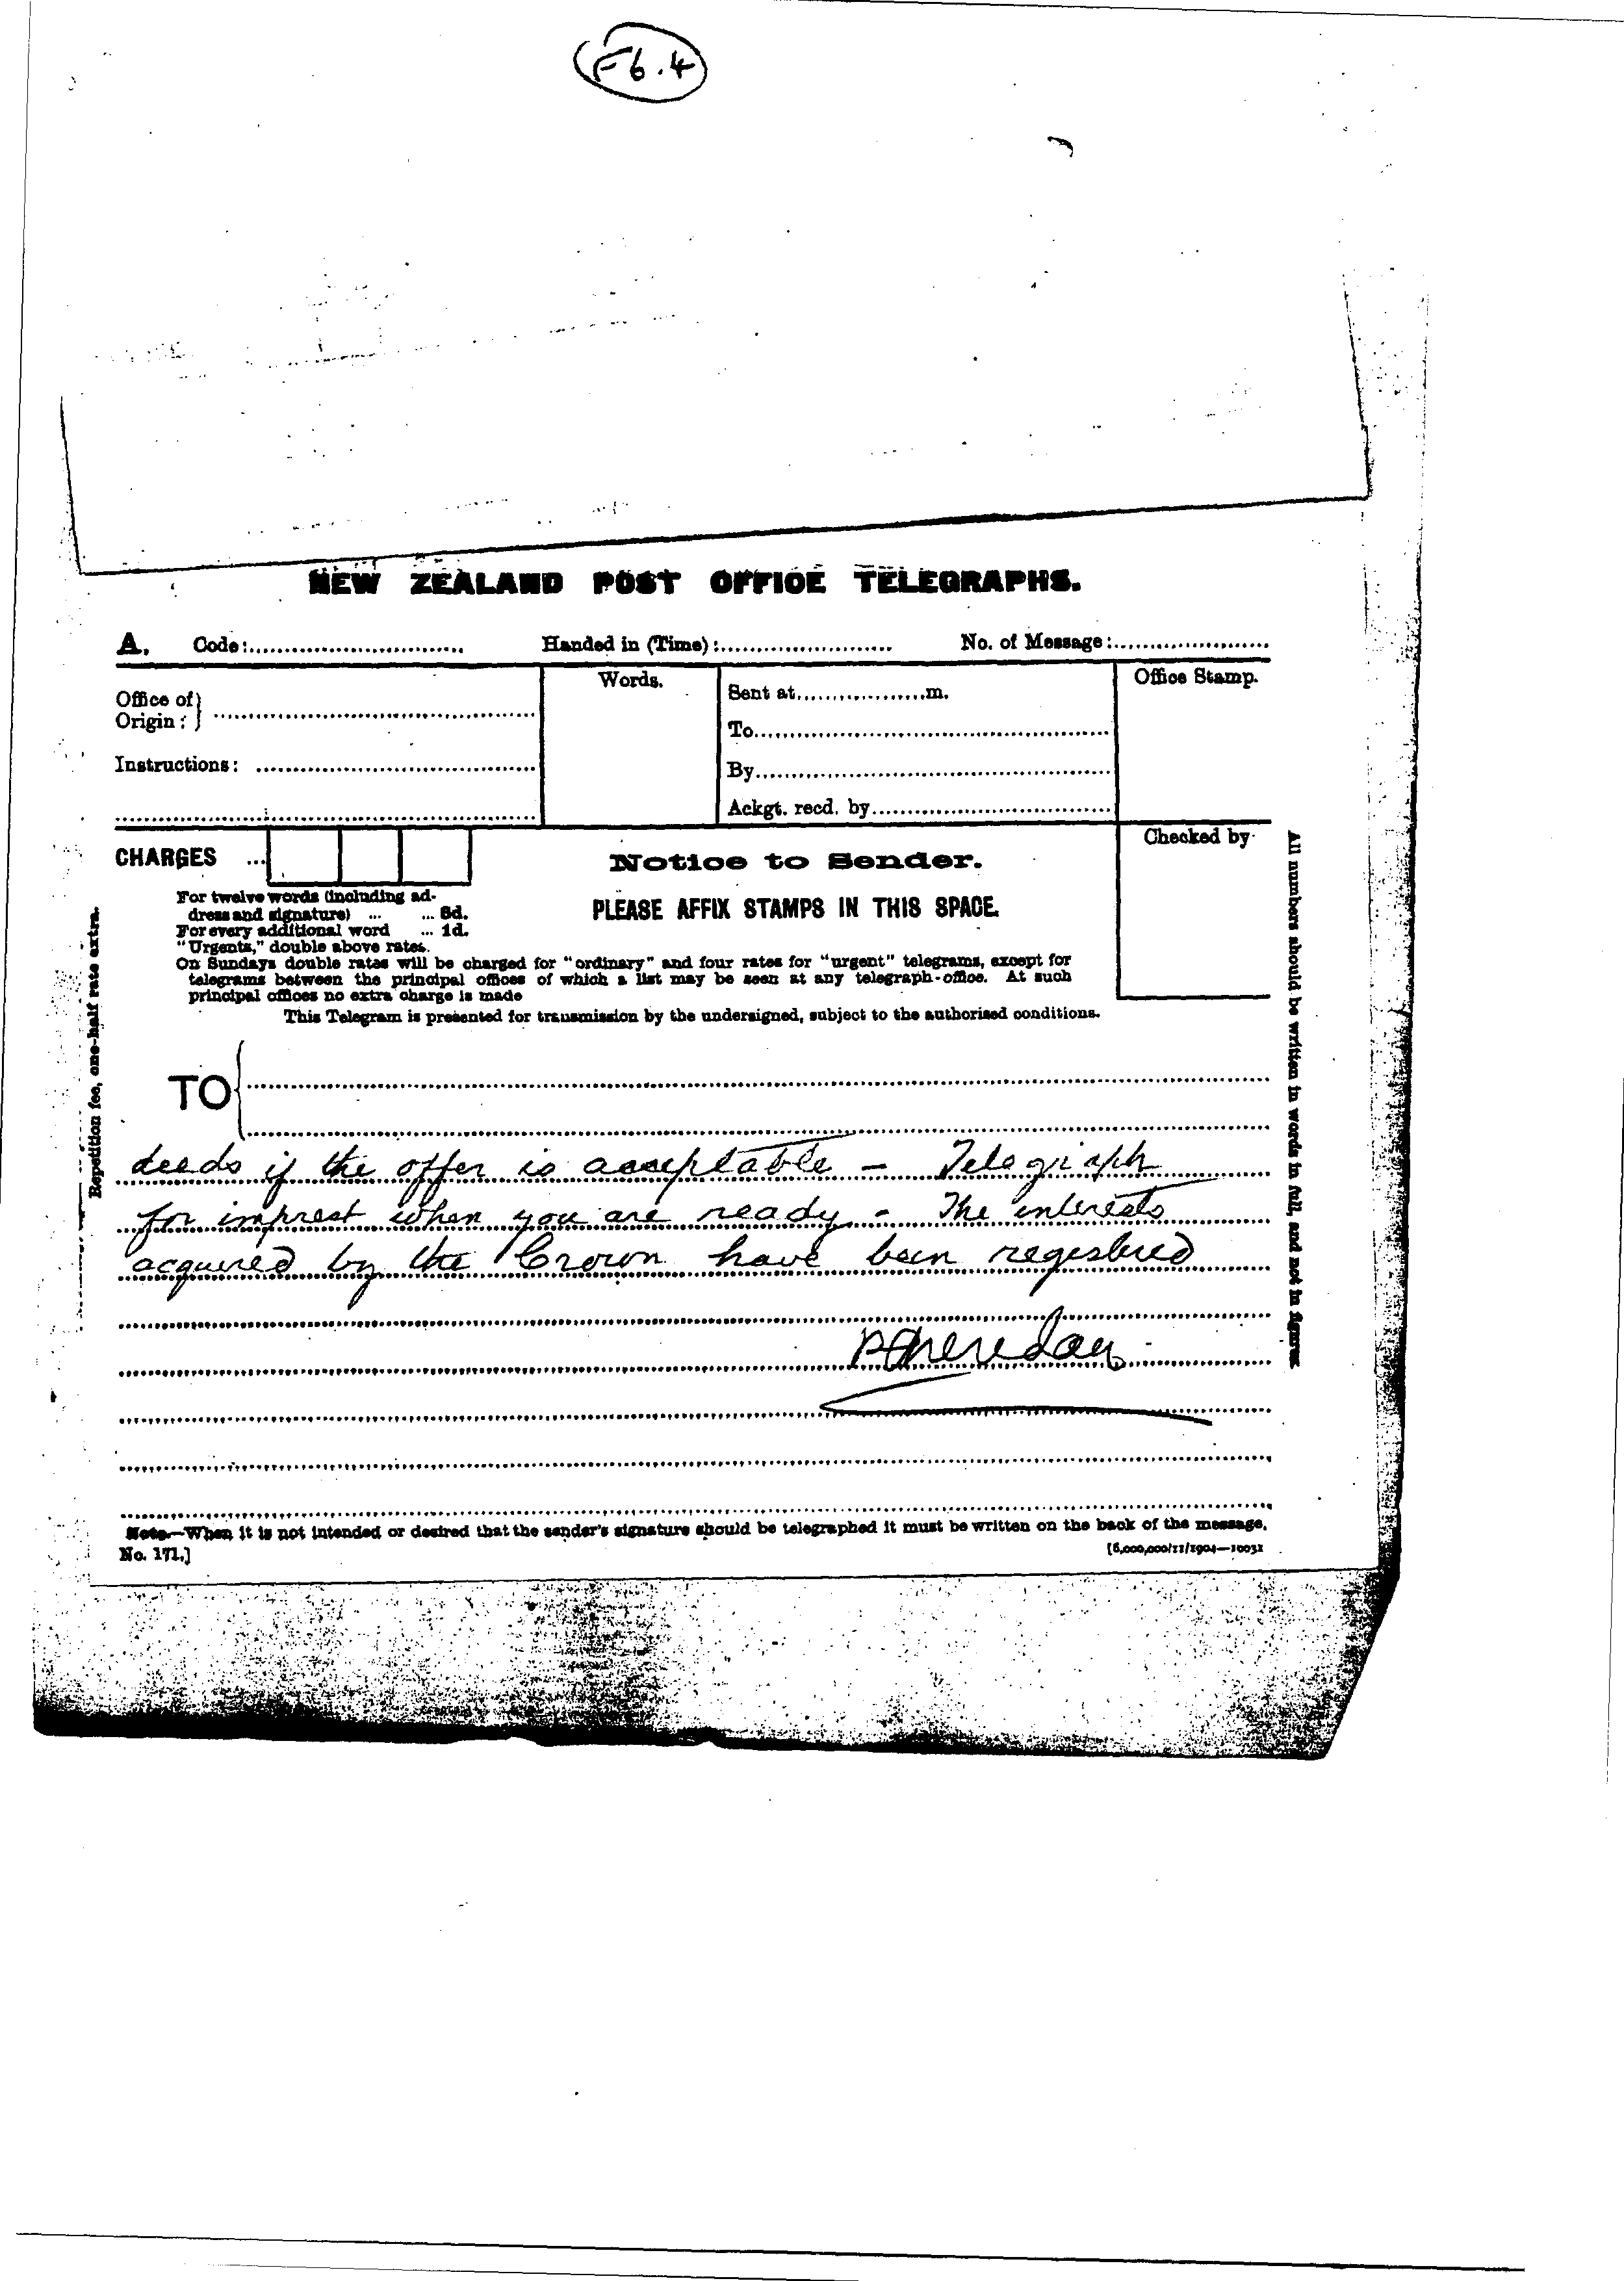 F6.4
NEW ZEALAND POST OFFICE TELEGRAPHS.
A. Code:
Handed in (Time):
No. of Message:
Office of Origin:
Words.
Sent at m.
Office Stamp.
To
Instructions:
By
Ackgt. recd. by
CHARGES ...
Notice to Sender.
Checked by
PLEASE AFFIX STAMPS IN THIS SPACE.
For twelve words (including ad-
dress and signature) ... ... 6d.
For every additional word ... 1d.
"Urgents," double above rates.
On Sundays double rates will be charged for "ordinary" and four rates for "urgent" telegrams, except for
telegrams between the principal offices of which a list may be seen at any telegraph-office. At such
principal offices no extra charge is made
This Telegram is presented for transmission by the undersigned, subject to the authorised conditions.
Repetition fee, one-half rate extra.
All numbers should be written in words in full, and not in figures
TO
deeds if the offer is acceptable – Telegraph
for imprest when you are ready – The interests
acquired by the Crown have been registered
P Sheridan
Note.—When it is not intended or desired that the sender's signature should be telegraphed it must be written on the back of the message.
No. 171.]
[6,000,000/11/1904—10031